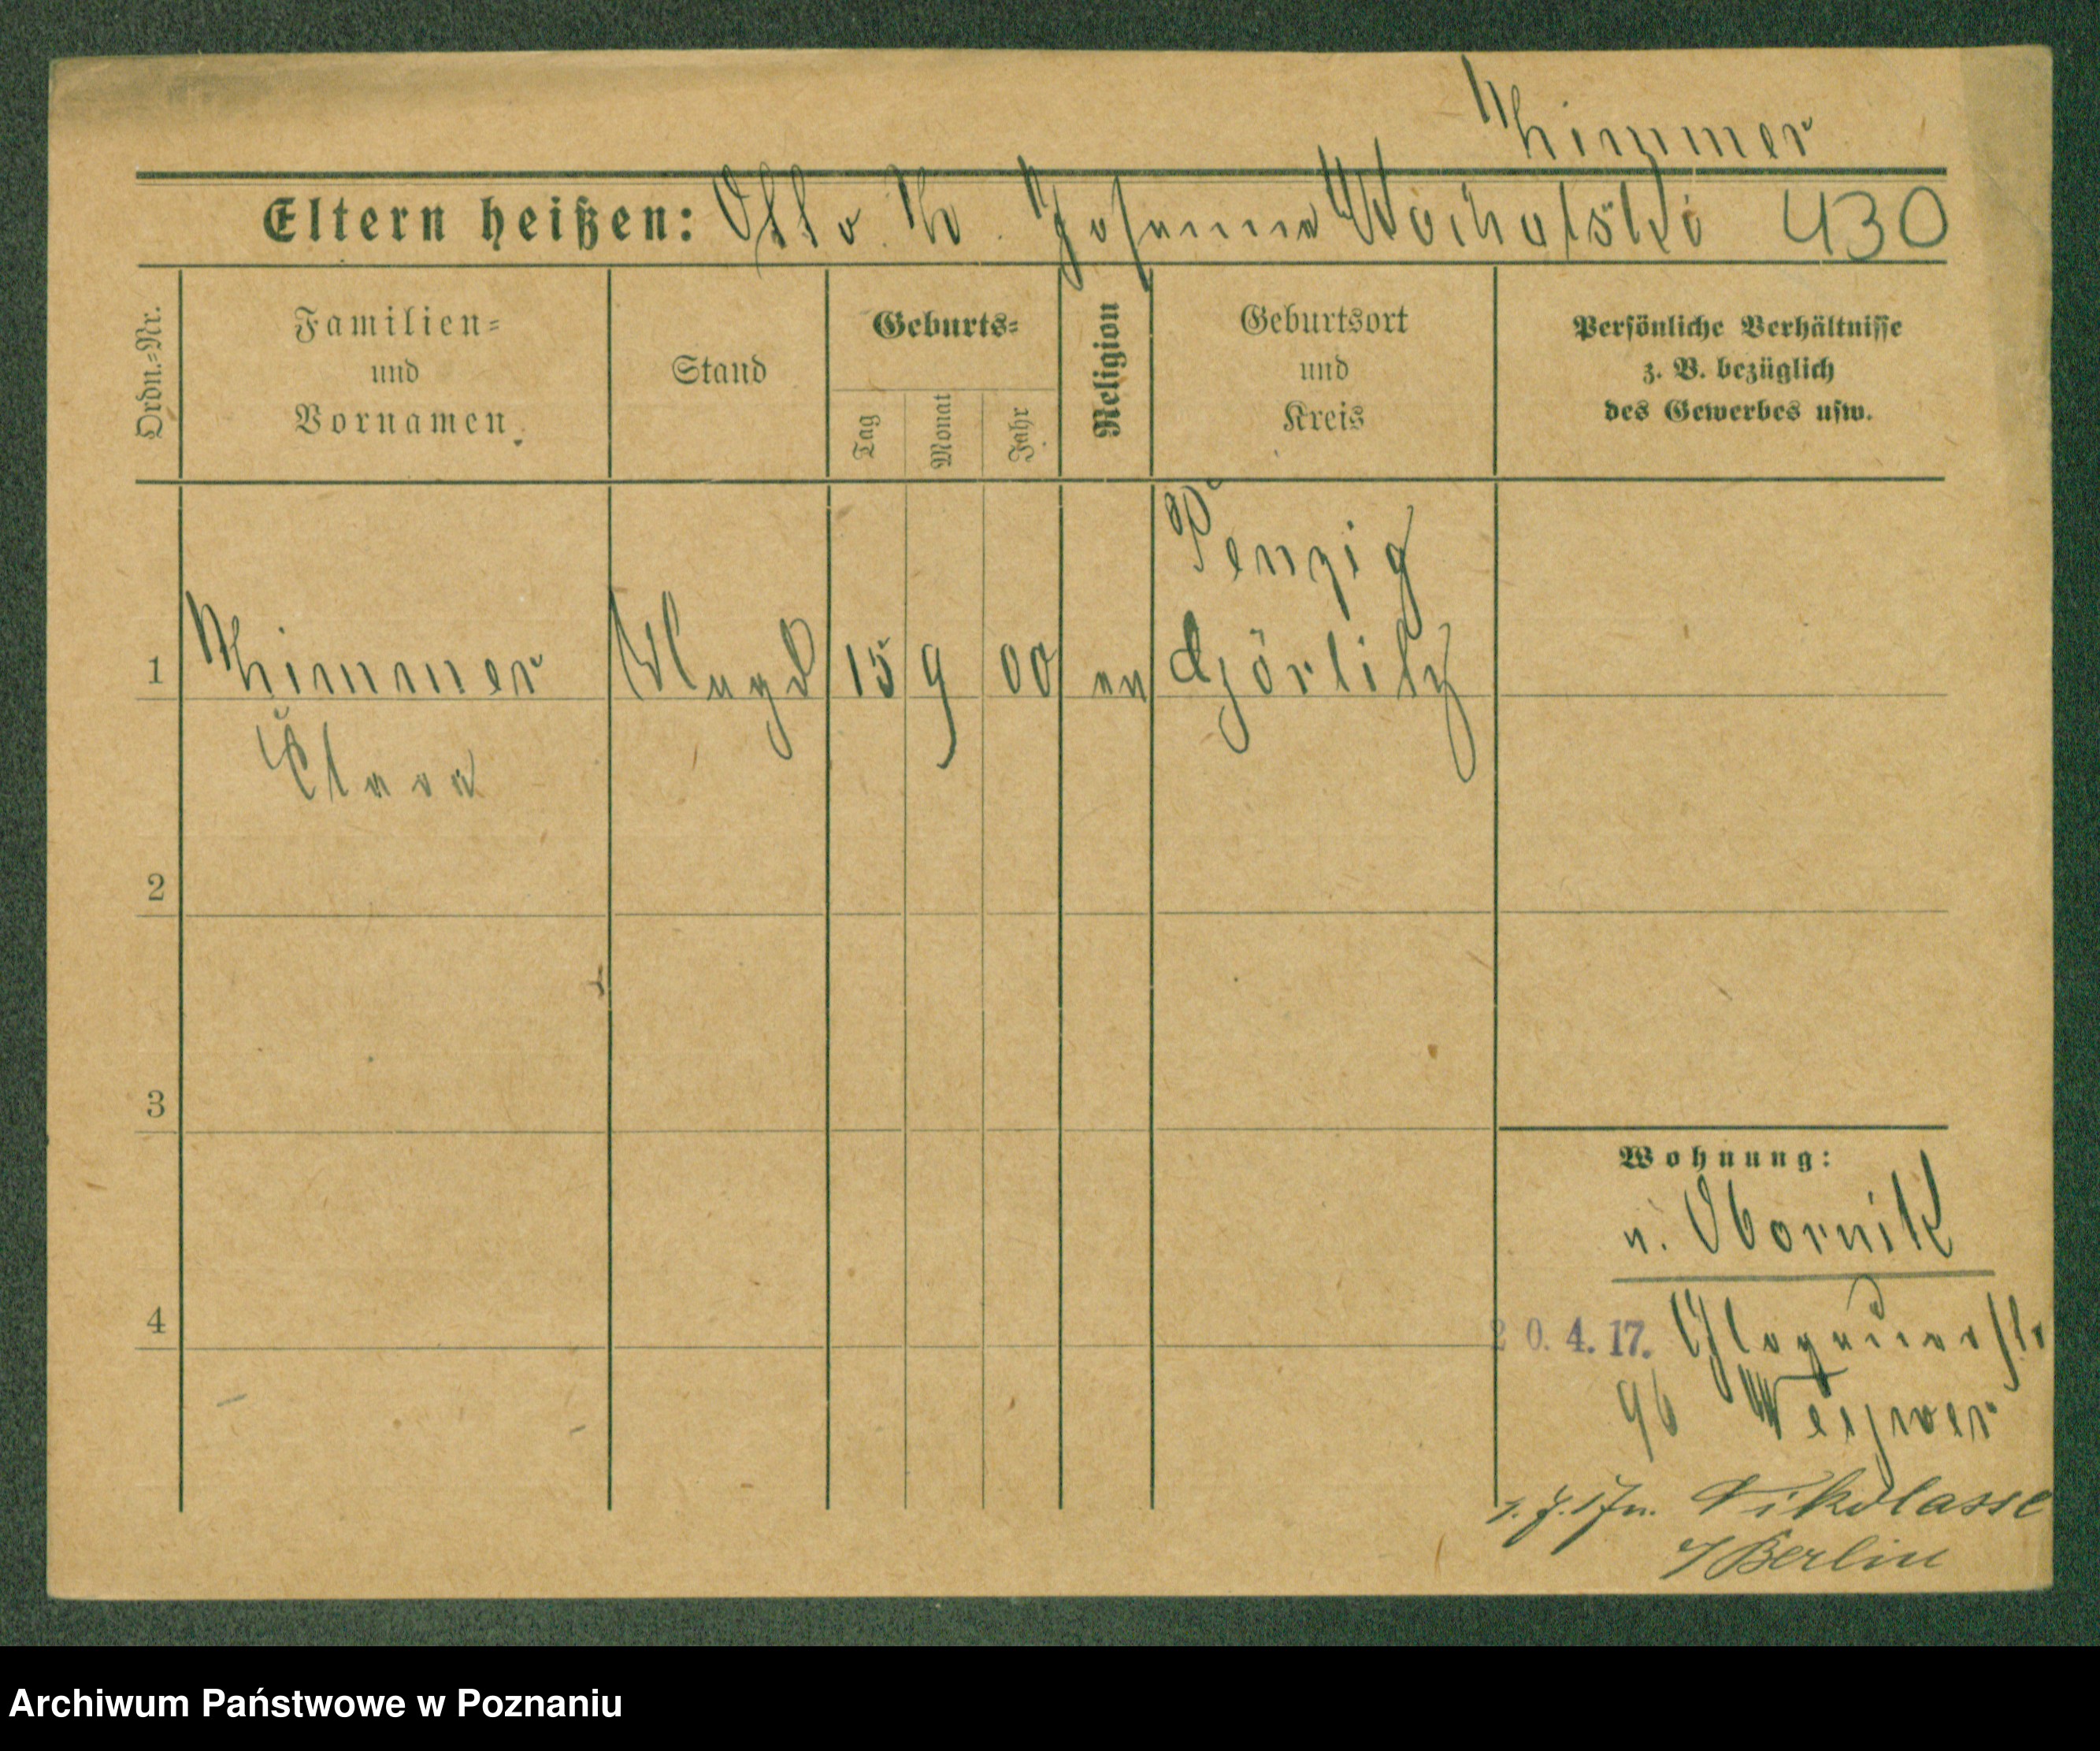 Thimmer
Eltern heißen: Otto Th. Johanna Wochatski 430
Ordn.-Nr.
Familien-
und
Vornamen.
Stand
Geburts-
Tag
Monat
Jahr
Religion
Geburtsort
und
Kreis
Persönliche Verhältnisse
z. B. bezüglich
des Gewerbes usw.
1 Thimmer Magd 15 9 00 ev Penzig
Görlitz
Clara
2
3
4
Wohnung:
v. Obornik
20.4.17. Glogauerstr
96
1.7.17 n. Nikolasse
/Berlin
Archiwum Państwowe w Poznaniu